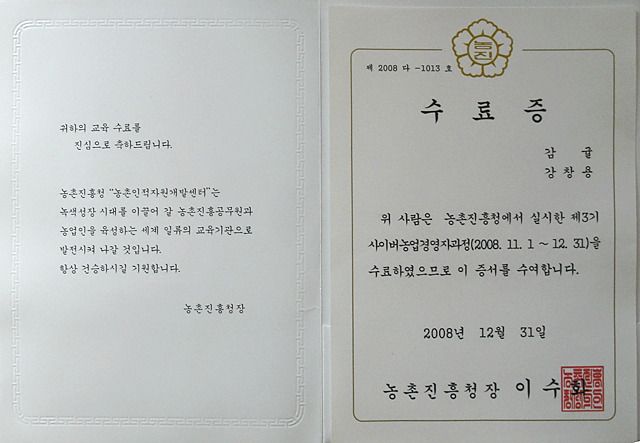 귀하의 교육 수료를
진심으로 축하드립니다.
농촌진흥청 "농촌인적자원개발센터"는
녹색성장 시대를 이끌어 갈 농촌진흥공무원과
농업인을 육성하는 세계 일류의 교육기관으로
발전시켜 나갈 것입니다.
항상 건승하시길 기원합니다.
농촌진흥청장
농진
제 2008 다 -1013 호
수료증
감 귤
강창용
위 사람은 농촌진흥청에서 실시한 제3기
사이버농업경영자과정(2008. 11. 1 ~ 12. 31)을
수료하였으므로 이 증서를 수여합니다.
2008년 12월 31일
농촌진흥청장 이수화